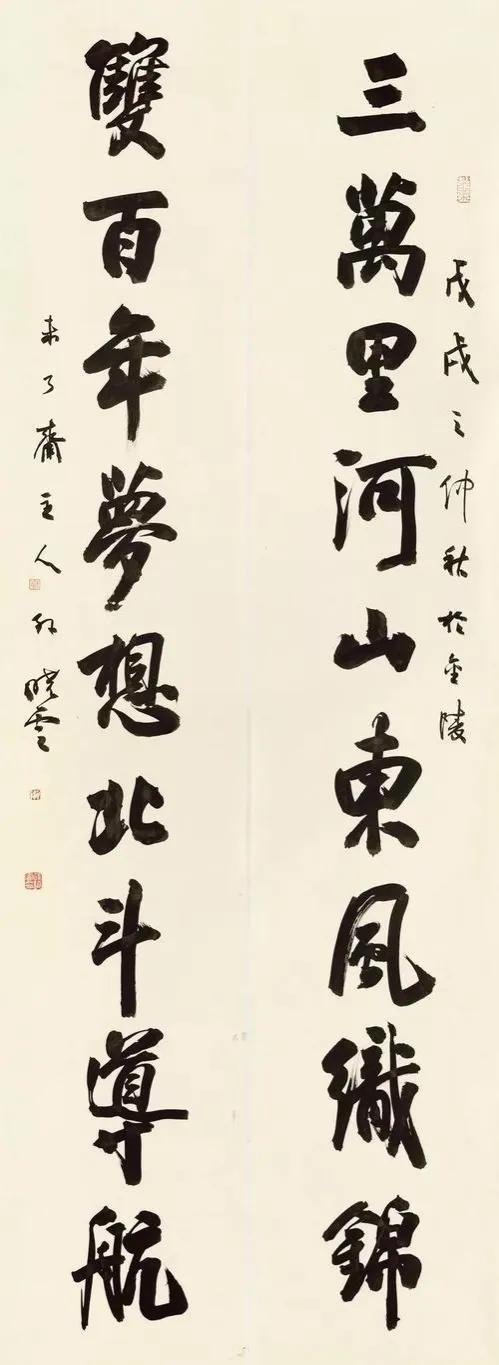 戊戌之仲秋於金陵
三萬里河山東風織錦
雙百年夢想北斗導航
未了齋主人孫曉雲